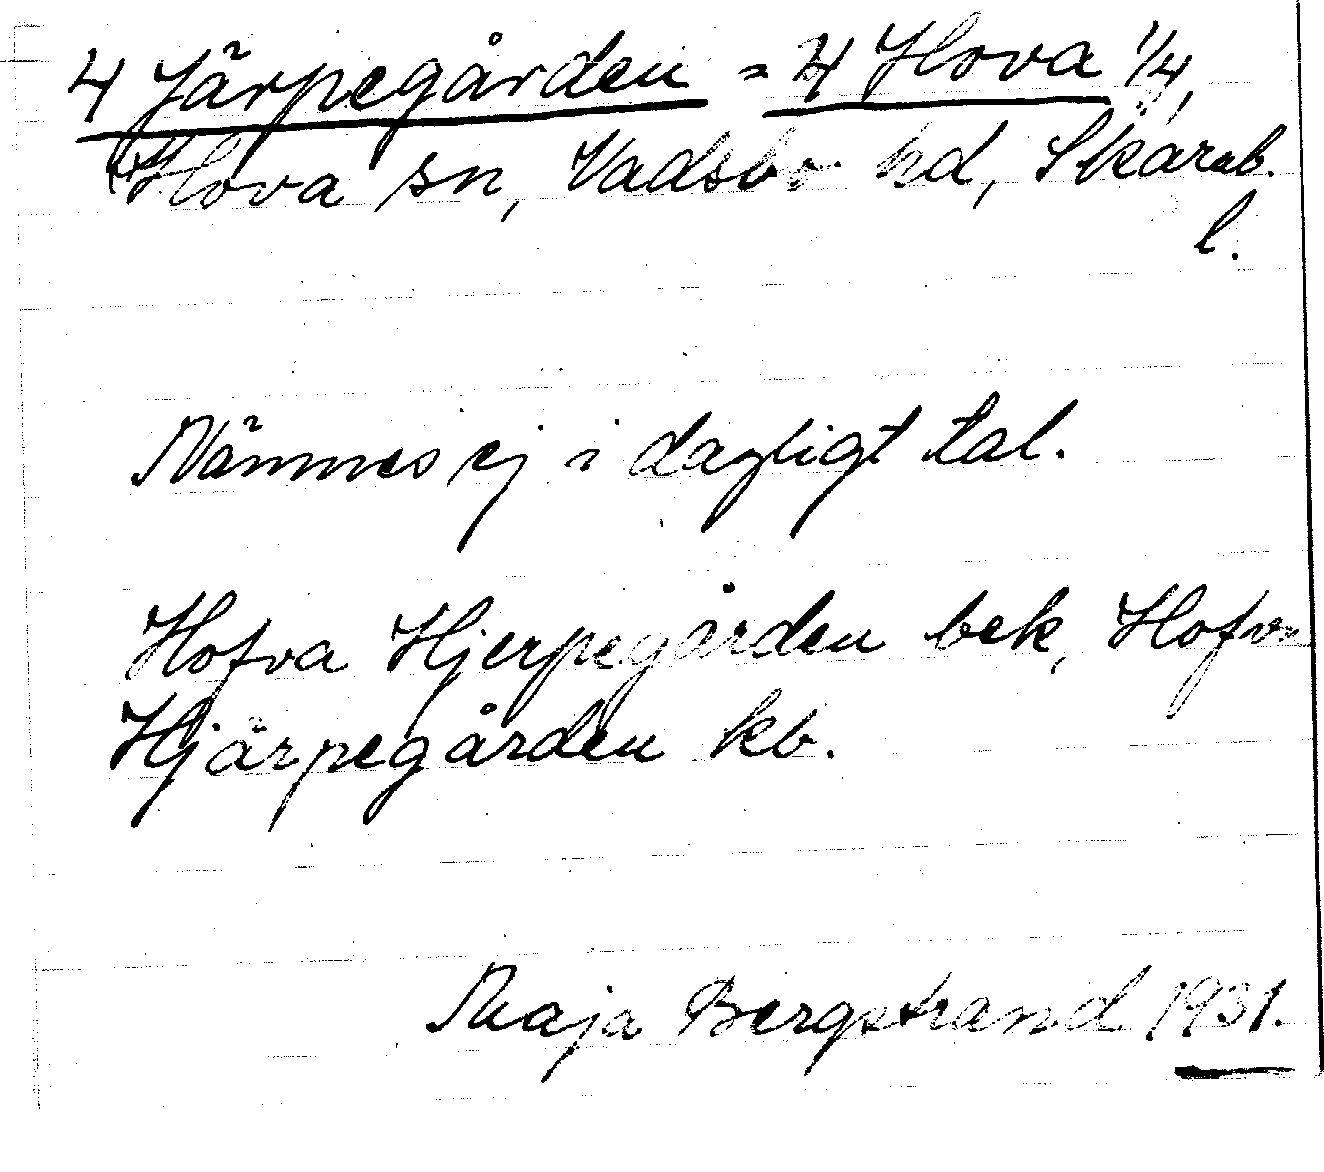 4 Järpegården = 4 Hova 1/4,
Hova sn, Vadsbo hd, Skarab.
l.
Nämnes ej i dagligt tal.
Hofva Hjerpegården bek, Hofva
Hjärpegården kb.
Maja Bergstrand 1931.